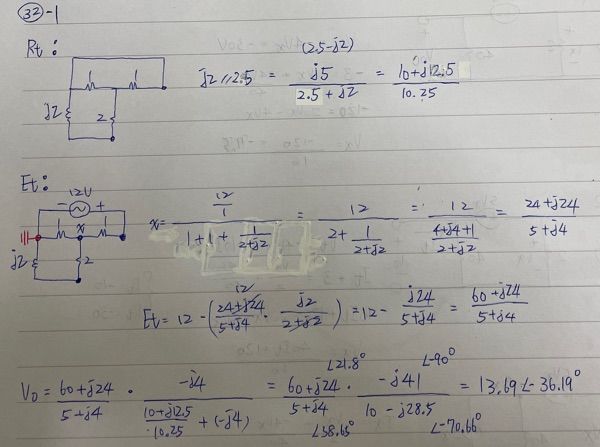 32-1
Rt:
1 1
j2 2
(2.5-j2)
j2 // 2.5 = j5 / (2.5+j2) = (10+j12.5) / 10.25
Et:
12V
- +
1 x 1
j2 2
x = (12/1) / (1+1+1/(2+j2)) = 12 / (2+1/(2+j2)) = 12 / ((4+j4+1)/(2+j2)) = (24+j24) / (5+j4)
Et = 12 - ((24+j24)/(5+j4) · j2/(2+j2)) = 12 - j24/(5+j4) = (60+j24)/(5+j4)
12
∠21.8° ∠-90°
V0 = (60+j24)/(5+j4) · -j4 / ((10+j12.5)/10.25 + (-j4)) = (60+j24)/(5+j4) · -j41/(10-j28.5) = 13.69∠-36.19°
∠38.65° ∠-70.66°